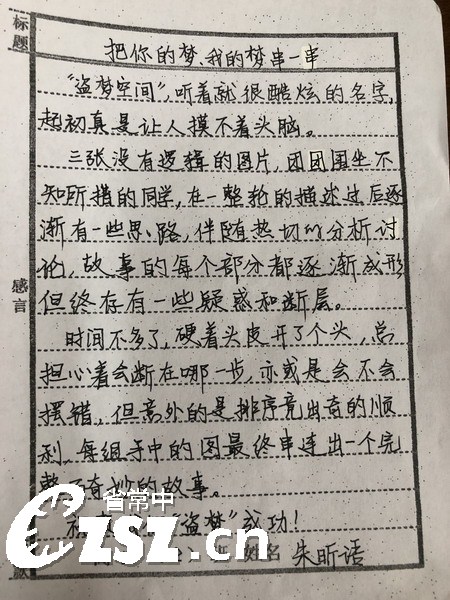 标题
把你的梦、我的梦串一串
“盗梦空间”,听着就很酷炫的名字,
起初真是让人摸不着头脑。
三张没有逻辑的图片,团团围坐不
知所措的同学,在一整轮的描述过后逐
渐有一些思路,伴随热切的分析讨
论,故事的每个部分都逐渐成形
但终存有一些疑惑和断层。
感言
时间不多了,硬着头皮开了个头,总
担心着会断在哪一步,亦或是会不会
摆错,但意外的是排序竟出奇的顺
利,每组手中的图最终串连出一个完
整而奇妙的故事。
省常中
“盗梦”成功!
czsz.cn
姓名 朱昕语